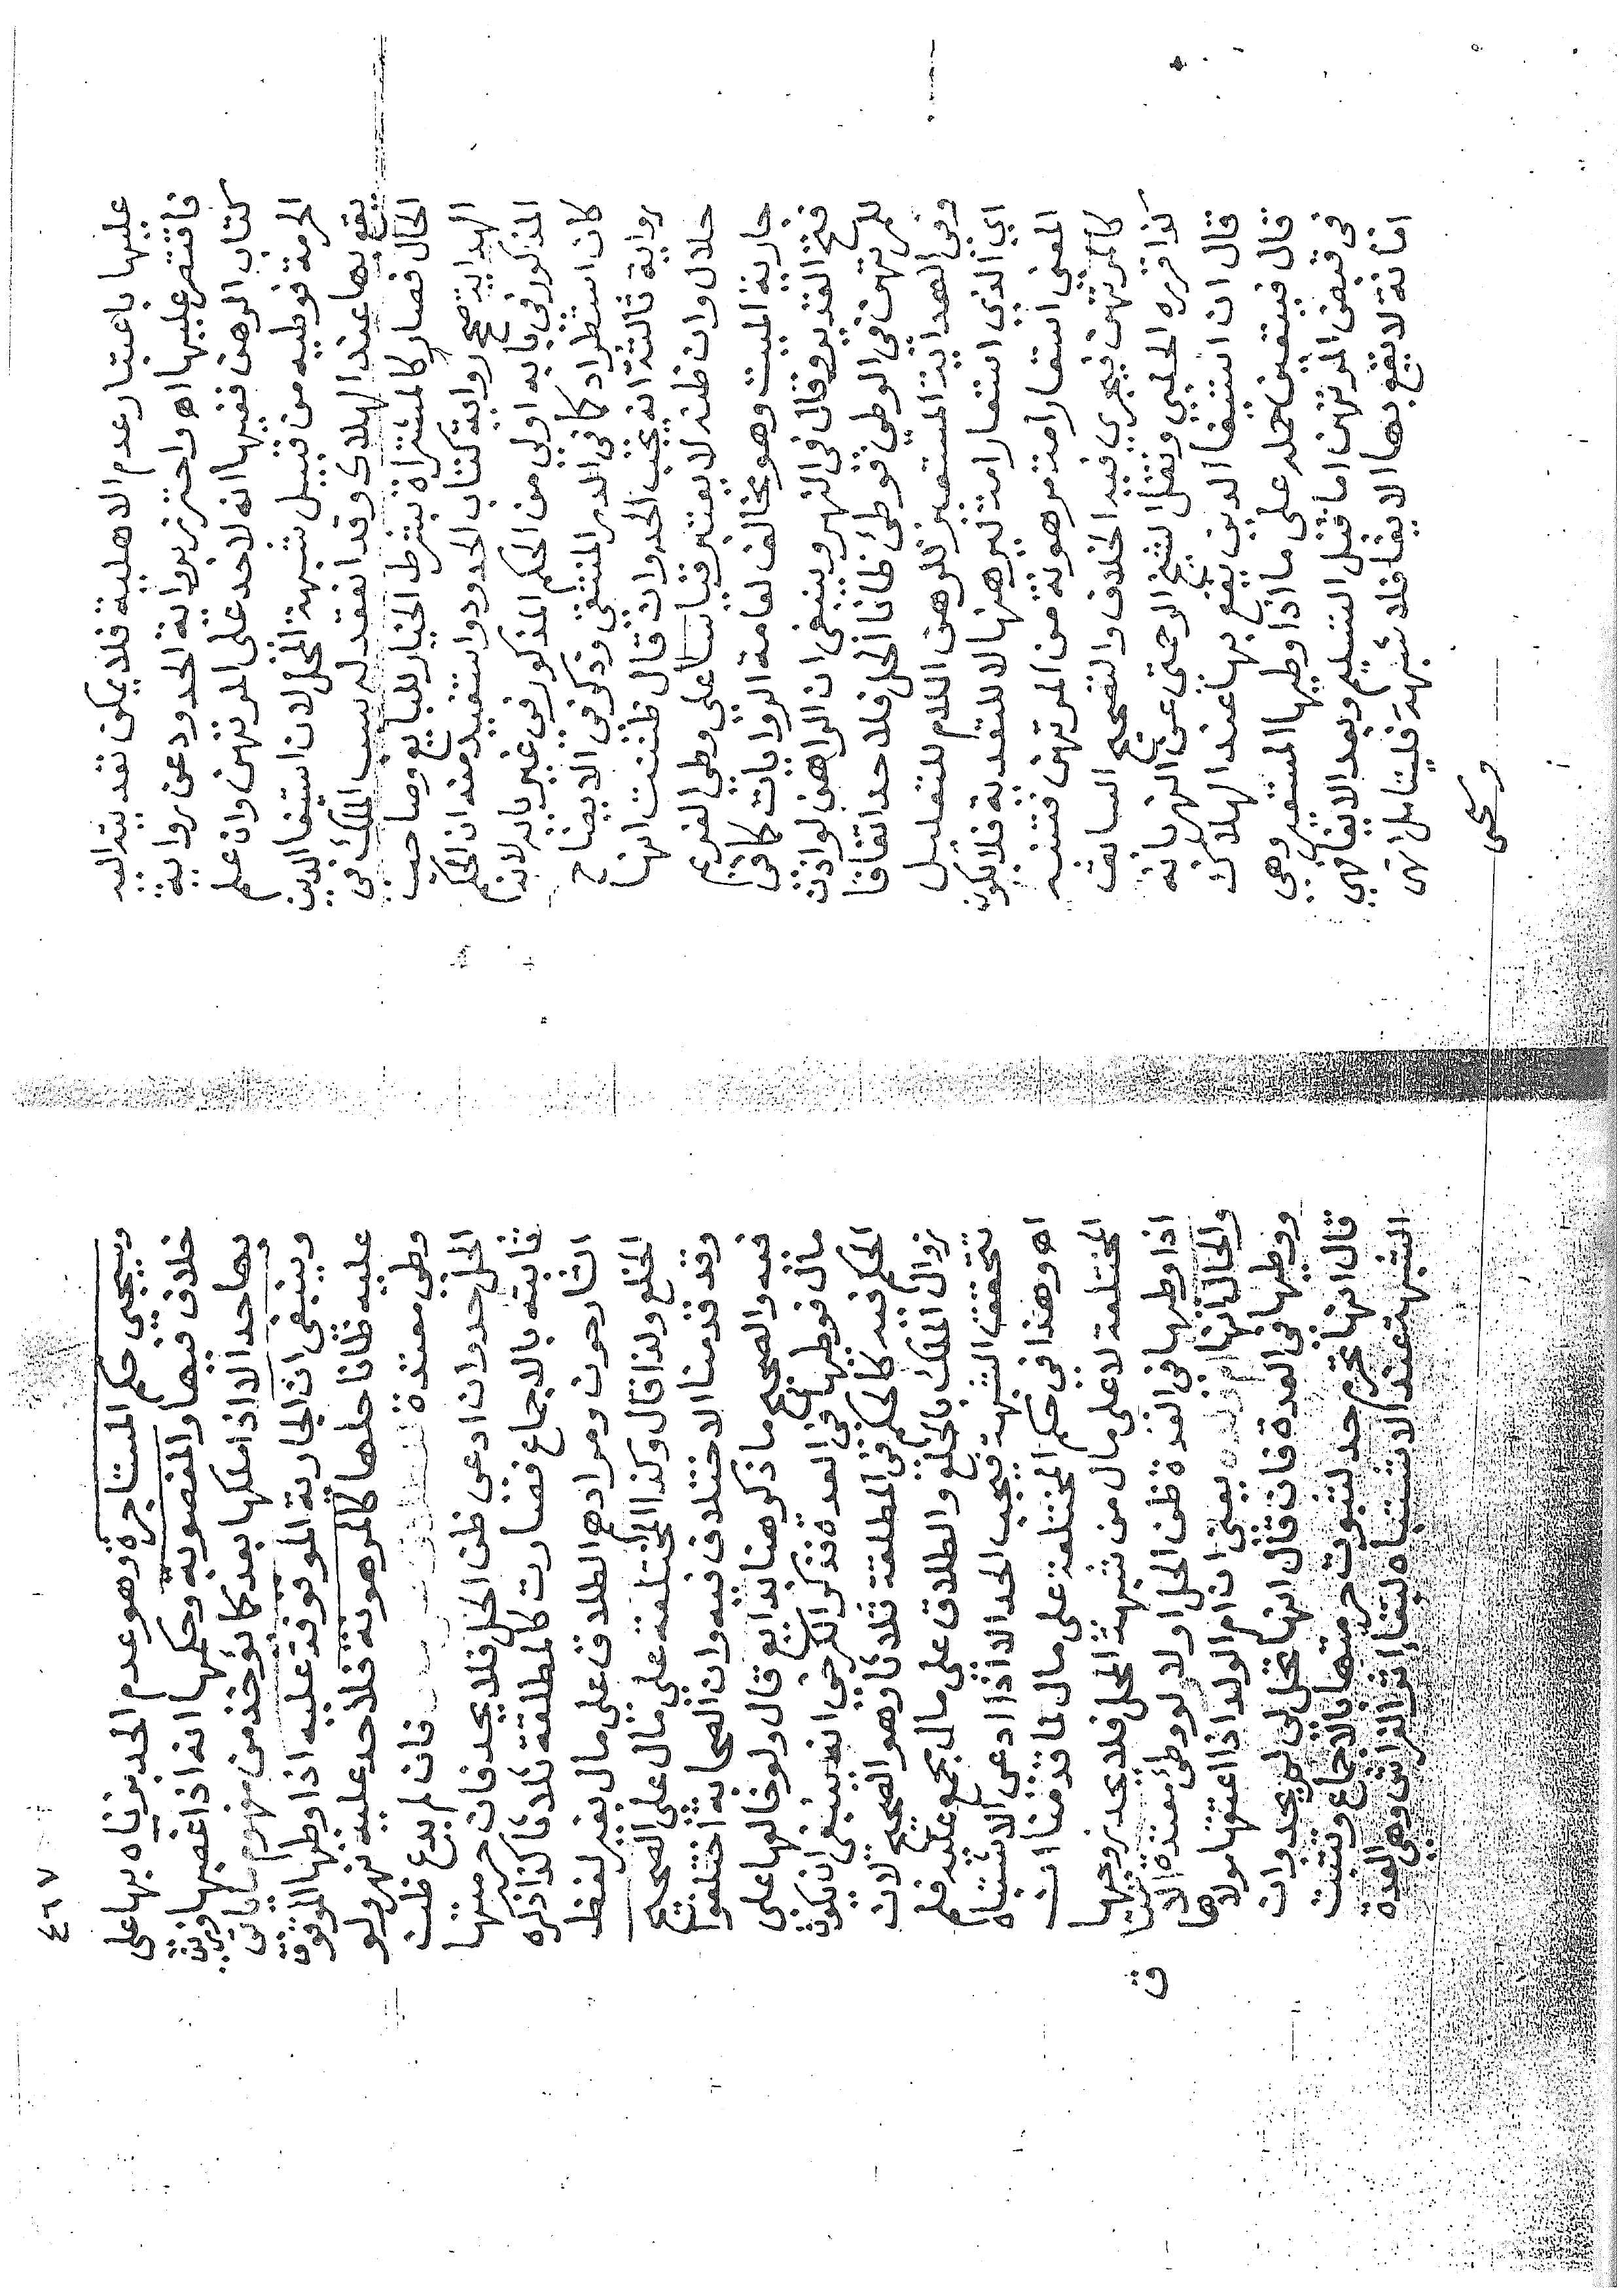 عليها باعتبار عدم الاهلية فلا يمكن تعديته اليه
فاقتصر عليها اه واحترز برواية الحدود عن رواية
كتاب الرهن ففيها انه لاحد على المرتهن وان علم
الحرمة فوطيه من قبيل شبهة المحل لان استيفا الدين
يقع بها عند الهلاك وقد انعقد له سبب الملك في
الحال فصار كالمشتراة بشرط الخيار للبايع وصاحب
الهداية صحح رواية كتاب الحدود واستفيد منه ان الحكم
المذكور في بابه اولى من الحكم المذكور في غير بابه لانه
كان استطراد كما في الدر المنتقى وذكر في الايضاح
رواية ثالثة انه يجب الحد وان قال ظننت انها
حلال وان ظنه لا يعتبر قياسا على وطي الغريم
جارية الميت وهو مخالف لعامة الروايات كما في
فتح القدير وقال في النهر وينبغي ان الراهن لو اذن
للمرتهن في الوطي فوطئ ظانا الحل فلا حد اتفاقا
وفي الهداية المستعير للرهن اللام للتعليل
اي الذي استعار امة ليرهنها لا للتعدية فلا يكون
المعنى استعار امة مرهونة من المرتهن فتنبه
كالمرتهن فيجري فيه الخلاف والتصحيح السابق
كذا قرره الحلبي ونقل الشيخ الرحمتي عن النهر بانه
قال ان استيفا الدين يقع بها عند الهلاك
قال فيتعين حمله على ما اذا وطيها المستعير وهي
في قبض المرتهن اما قبل التسليم وبعد الايفا فهي
امانة لا يقع بها الايفا فلا شبهة فليتامل انتهى
ويجي
٤٦٧
ويجيي حكم المستاجرة وهو عدم الحد بزناه بها على
خلاف فيها والمغصوبة وحكمها انه اذا غصبها وزنى
بها حد الا اذا ملكها بعد كما يؤخذ من مفهوم ما ياتي
وينبغي ان الجارية الموقوفة عليه اذا وطيها الموقوف
عليه ظانا حلها كالمرهونة فلا حد عليه نهر ولو
وطي معتدة فان لم يدع ظن
الحل حد وان ادعى ظن الحل فلا يحد فان حرمتها
ثابتة بالاجماع فصارت كالمطلقة ثلاثا كذا ذكره
الشارحون ومرادهم الطلاق على مال بغير لفظ
الخلع ولذا قال وكذا المختلعة على مال على الصحيح
وقد قدمنا الاختلاف فيه وان الصحابة اختلفوا
فيه والصحيح ما ذكر هنا بدايع قال ولو خالعها على
مال فوطيها في العدة فذكر الكرخي انه ينبغي ان يكون
الحكم فيه كالحكم في المطلقة ثلاثا وهو الصحيح لان
زوال الملك بالخلع والطلاق على مال مجمع عليه فلم
تتحقق الشبهة فيجب الحد الا اذا ادعى الاشتباه
اه وهذا في حكم المختلعة على مال لما قدمنا ان
المختلعة لا على مال من شبهة المحل فلا يحد زوجها
اذا وطيها في العدة ظن الحل اولا لو وطئ معتدة الا
والحال انها ام ولده يعني ان ام الولد اذا اعتقها مولاها
ووطيها في العدة فان قال انها تحل لي لم يحد وان
قال انها تحرم حد لثبوت حرمتها بالاجماع وتثبت
الشبهة عند الاشتباه لبقا اثر الفراش وهي العدة